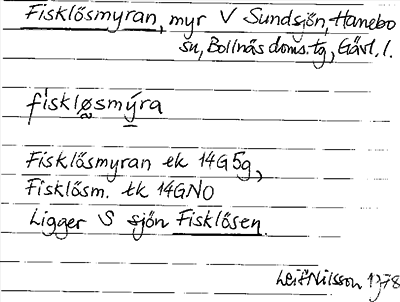 Fisklösmyran, myr V Sundsjön, Hanebo
sn, Bollnäs doms.tg, Gävl. l.
fiskløsmýra
Fisklösmyran ek 14G5g,
Fisklösm. tk 14GNO
Ligger S sjön Fisklösen.
Leif Nilsson 1978